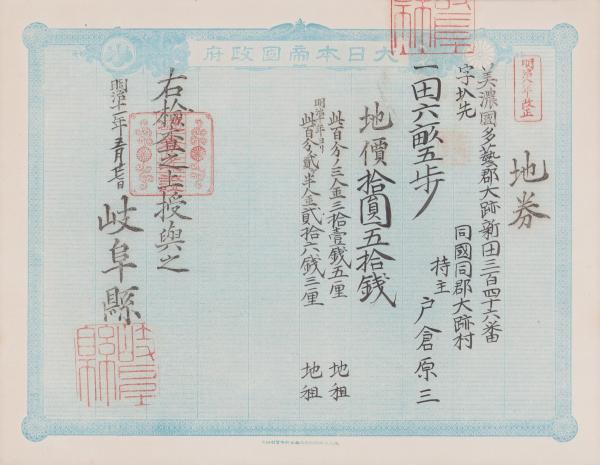 大日本帝國政府
明治八年改正
地券
美濃國多藝郡大跡新田三百四十六番
字圦先
同國同郡大跡村
持主 戸倉原三
一田六畝五歩
地價拾圓五拾銭
此百分ノ三金三拾壹銭五厘 地租
明治十年ヨリ
此百分ノ貳半金貳拾六銭三厘 地租
右検査之上授與之
明治十一年
岐阜縣